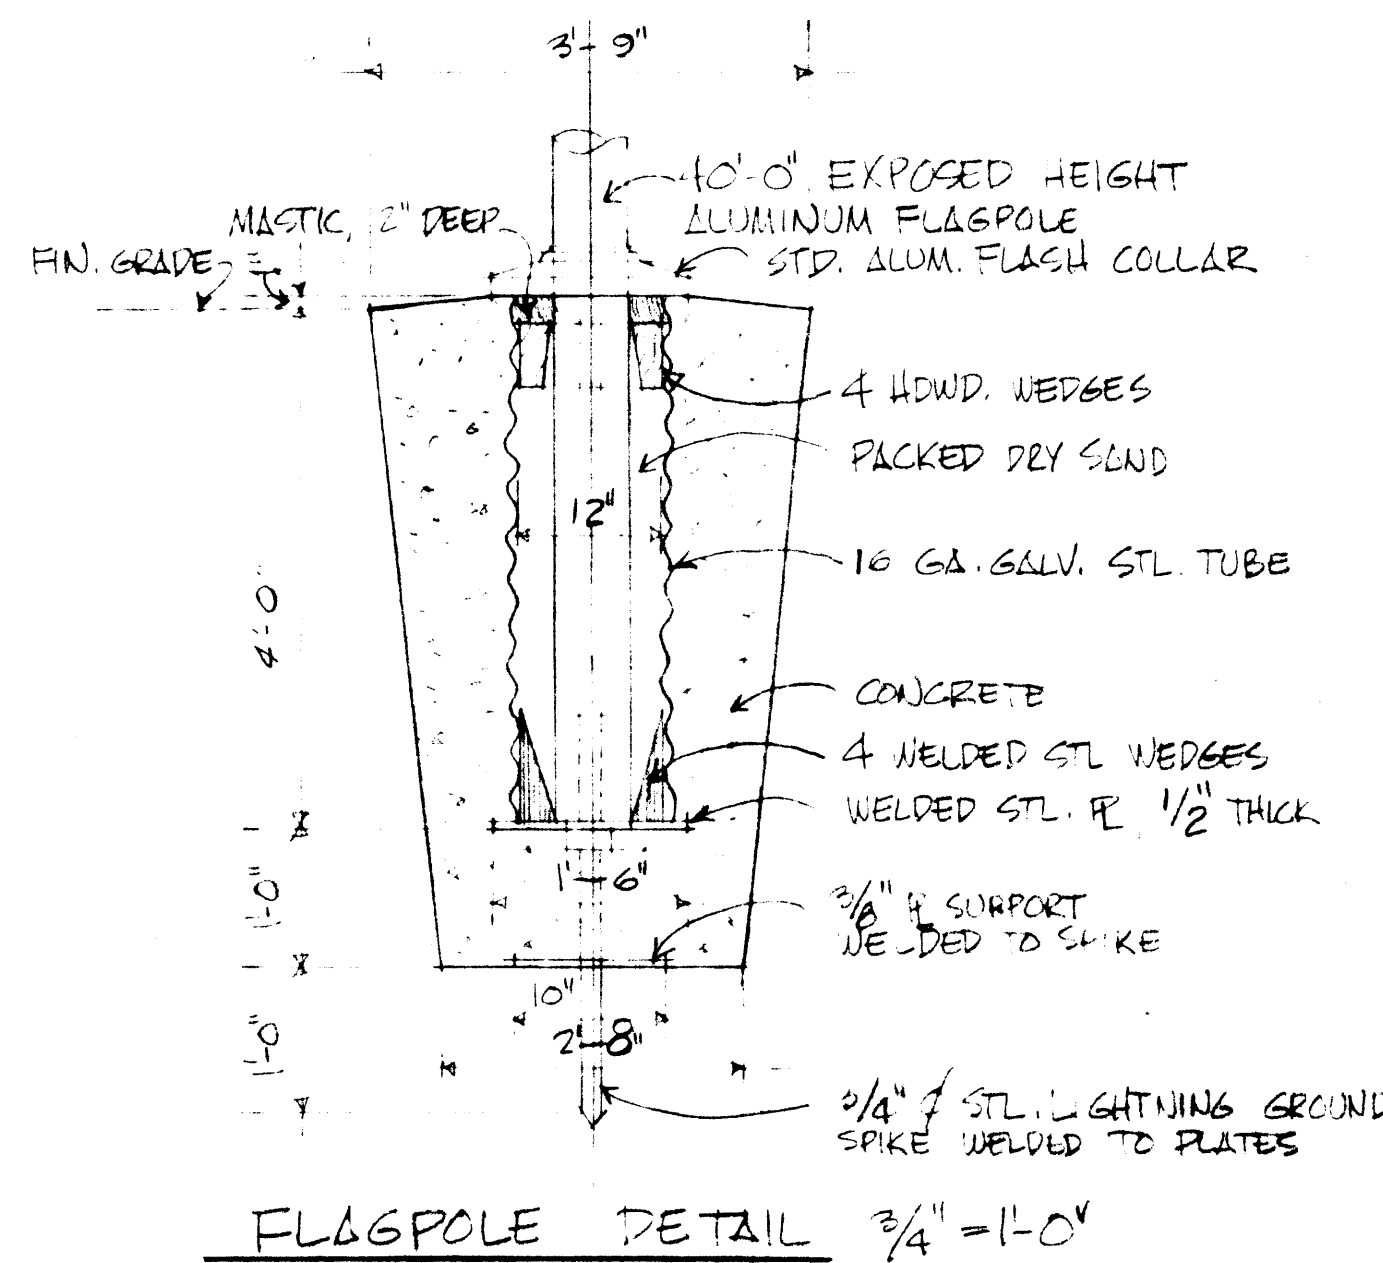 3'-9"
40'-0" EXPOSED HEIGHT
ALUMINUM FLAGPOLE
MASTIC, 2" DEEP
STD. ALUM. FLASH COLLAR
FIN. GRADE
1"
4 HDWD. WEDGES
PACKED DRY SAND
12"
16 GA. GALV. STL. TUBE
4'-0"
CONCRETE
4 WELDED STL WEDGES
WELDED STL. PL 1/2" THICK
1'-6"
1'-0"
3/8" PL SUPPORT
WELDED TO SPIKE
10"
2'-8"
1'-0"
3/4" ⌀ STL. LIGHTNING GROUND
SPIKE WELDED TO PLATES
FLAGPOLE DETAIL 3/4" = 1'-0"